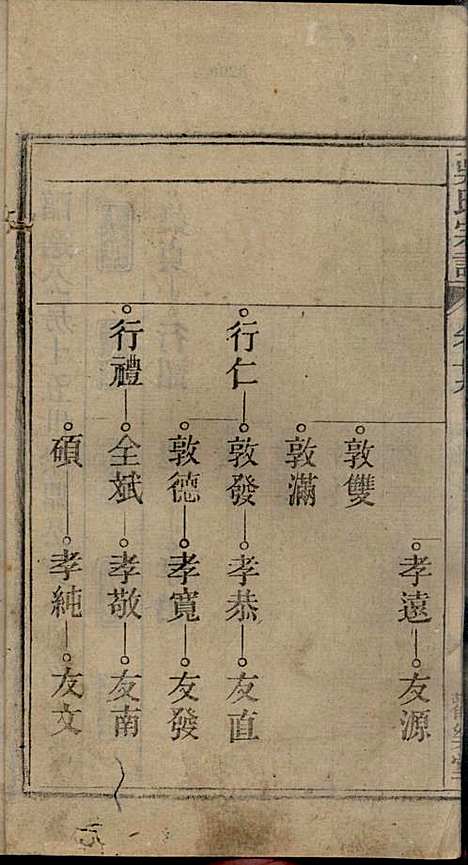 孝遠 友源
敦雙
敦滿
行仁 敦發 孝恭 友直
敦德 孝寬 友發
行禮 全斌 孝敬 友南
碩 孝純 友文